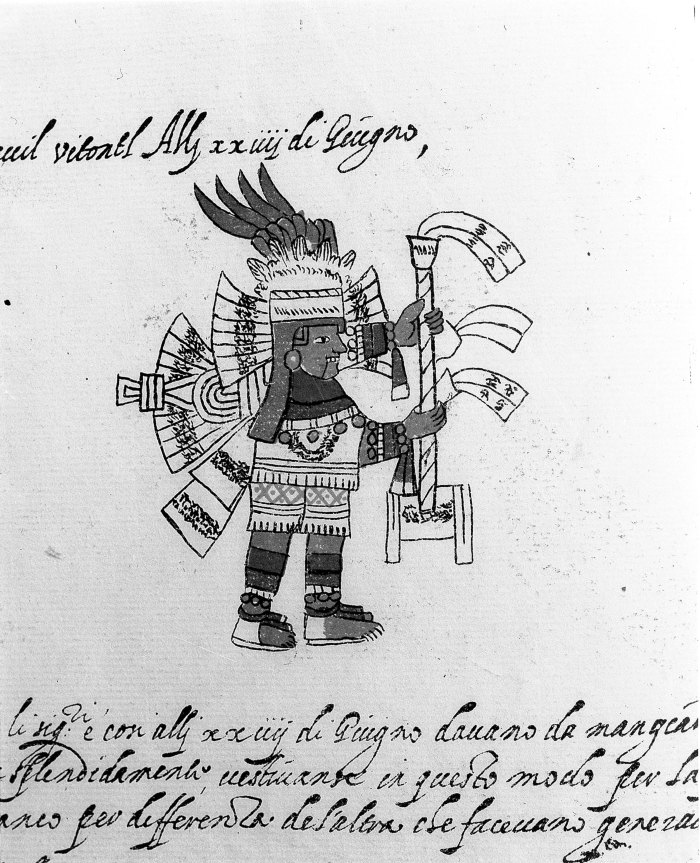 vitontl Allj xxiiij di Giugno,
li sig.ri é con allj xxiiij di Giugno davano da mangiar
splendidamente, vestivanse in questo modo per la
per differenza de l'altra che facevano